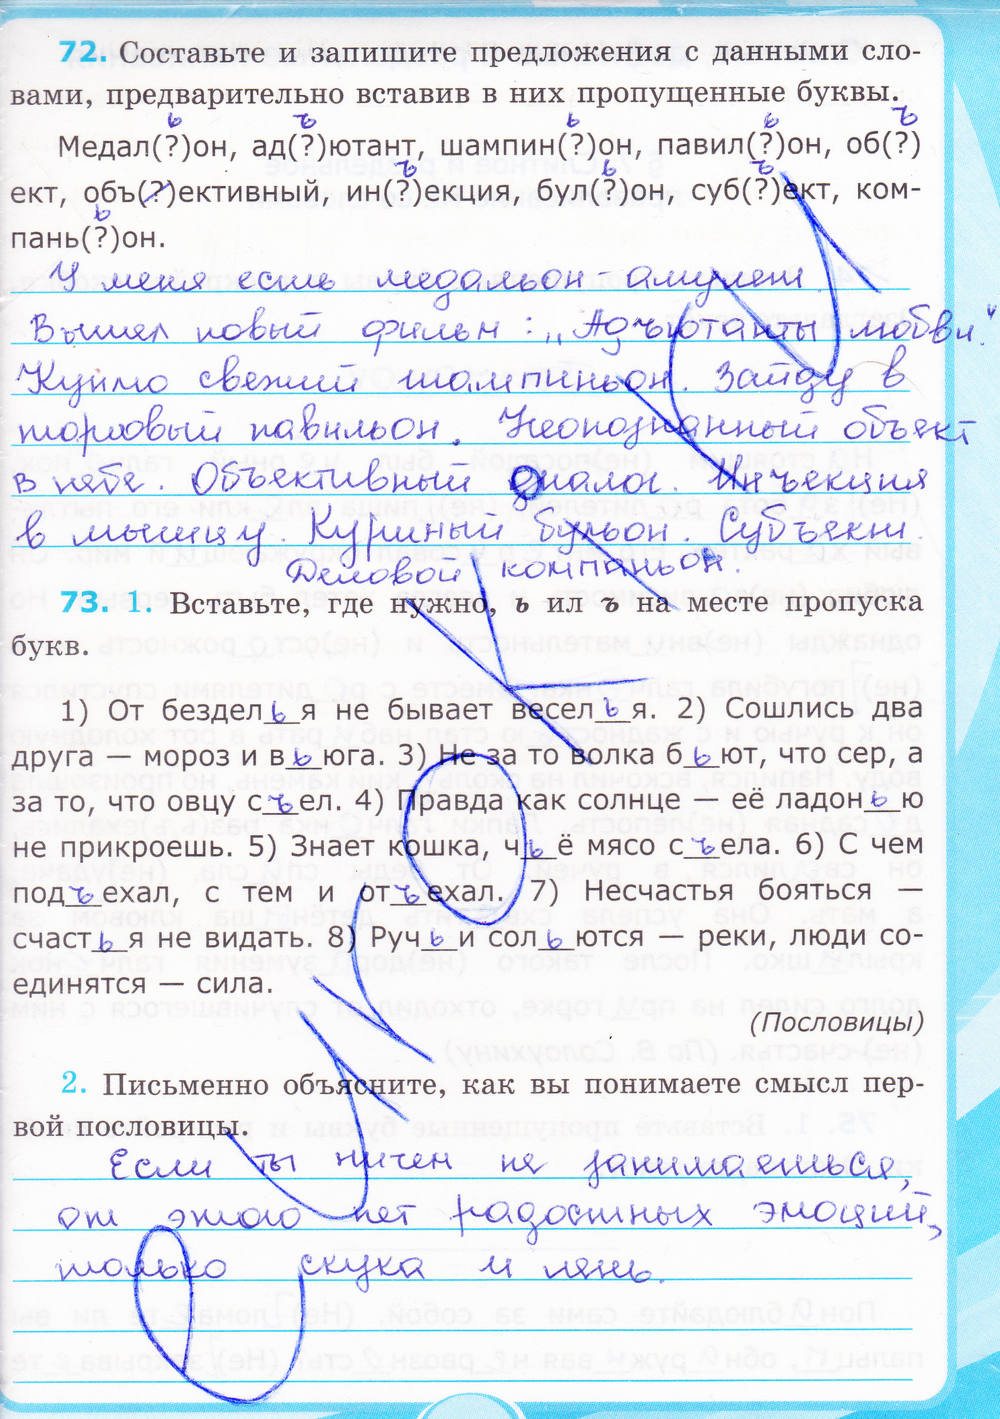 72. Составьте и запишите предложения с данными сло-
вами, предварительно вставив в них пропущенные буквы.
ь ъ ь ь ъ
Медал(?)он, ад(?)ютант, шампин(?)он, павил(?)он, об(?)
ъ ь ъ
ект, объ(?)ективный, ин(?)екция, бул(?)он, суб(?)ект, ком-
ь
пань(?)он.
У меня есть медальон амулет
Вышел новый фильм: „Адъютанты любви."
Куплю свежий шампиньон. Зайду в
торговый павильон. Неопознанный объект
в небе. Объективный диалог. Инъекция
в мышцу. Куриный бульон. Субъект
Деловой компаньон.
73. 1. Вставьте, где нужно, ь ил ъ на месте пропуска
букв.
1) От бездел ь я не бывает весел ъ я. 2) Сошлись два
друга — мороз и в ь юга. 3) Не за то волка б ь ют, что сер, а
за то, что овцу с ъ ел. 4) Правда как солнце — её ладон ь ю
не прикроешь. 5) Знает кошка, ч ь ё мясо с ъ ела. 6) С чем
под ъ ехал, с тем и от ъ ехал. 7) Несчастья бояться —
счаст ь я не видать. 8) Руч ь и сол ь ются — реки, люди со-
единятся — сила.
(Пословицы)
2. Письменно объясните, как вы понимаете смысл пер-
вой пословицы.
Если ты ничем не занимаешься,
от этого нет радостных эмоций,
только скука и лень.